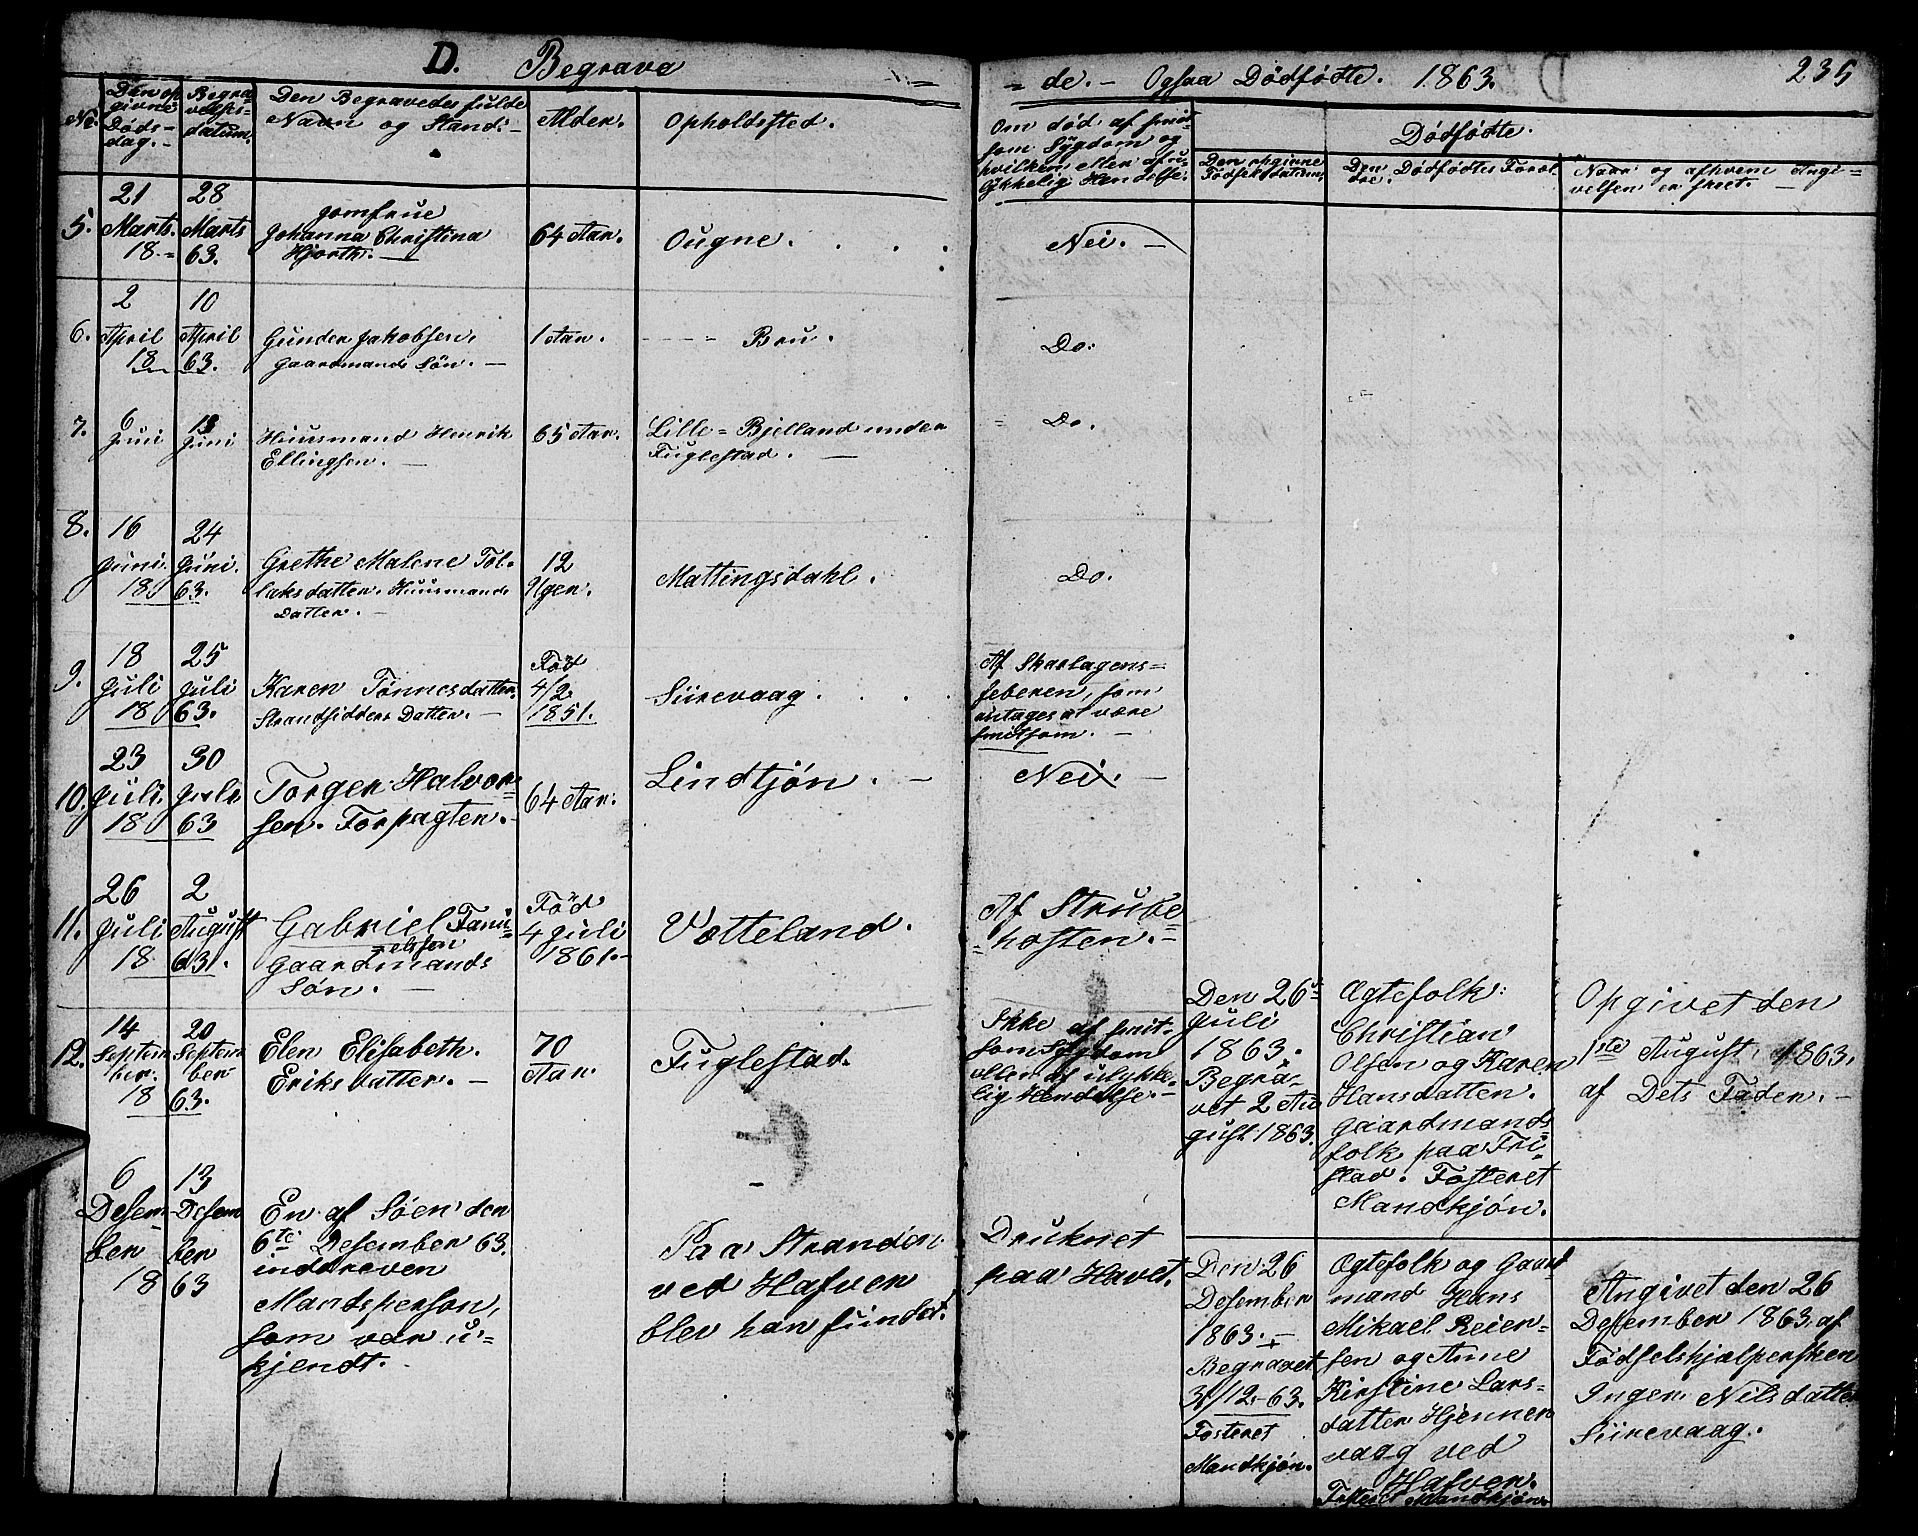 D. Begrave =
= de. - Ogsaa Dødfødte. 1863. 235
No.
Den op
givne
Døds-
dag.
Begra-
velses-
datum.
Den Begravedes fulde
Navn og Stand.
Alder.
Opholdssted.
Om død af smit-
som Sygdom og
hvilken, eller af u-
lykkelig Hendelse.
Dødfødte.
Den opgivne
Fødselsdatum.
Den Dødfødtes Foræl
dre.
Navn og afhvem Angi-
velsen er skeet.
5.
21
Marts
18
28
Marts
63.
Jomfrue
Johanna Christina
Hjorth.
64 Aar.
Ougne.
Nei.
6.
2
April
18
10
April
63.
Gunder Jakobsen.
Gaardmands Søn.
1 Aar.
Bru.
Do:
7.
6
Juni
13
Juni
Huusmand Henrik
Ellingsen.
65 Aar.
Lille-Bjelland under
Fuglestad.
Do.
8.
16
Juni.
18
24
Juni.
63.
Grethe Malene Tol-
laksdatter. Huusmands
Datter.
12
Ugen.
Mattingsdahl.
Do.
9.
18
Juli
18
25
Juli
63.
Karen Tønnesdatter.
Strandsidders Datter.
Fød
4/2
1851.
Siirevaag.
Af Skarlagens-
feberen, som
antages at være
smitsom.
10.
23
Juli.
18
30
Juli.
63
Torger Halvor-
sen. Forpagter.
64 Aar.
Lindtjøn.
Nei.
11.
26
Juli
18
2
August
63.
Gabriel Tani-
elsen
Gaardmands
Søn.
Fød
4 Juli
1861.
Votteland.
Af Strube
hosten.
12.
14
Septem
ber.
18
20
Septem
ber
63.
Elen Elisabeth.
Eriksdatter.
70
Aar.
Fuglestad.
Ikke af smit-
som Sygdom
eller af ulykke-
lig Hendelse.
Den 26de
Juli
1863.
Begra-
vet 2 Au
gust 1863.
Ægtefolk:
Christian
Olsen og Karen
Hansdatter.
Gaardmands-
folk paa Tri-
stad. Fosteret
Mandkjøn.
Opgivet den
1ste August 1863.
af Dets Fader.
6
Desem-
ber
18
13
Desem
ber
63
En af Søen den
6te Desember 63.
inddreven
Mandsperson,
som var u-
kjendt.
Paa Stranden
ved Hafven
blev han funden.
Druknet
paa Havet.
Den 26
Desember
1863.
Begravet
31/12-63.
Fosteret
Mandkjøn.
Ægtefolk og Gaard
mand Hans
Mikael Reier-
sen og Anne
Kirstine Lars-
datter Hjenner
vaag ved
Hafven.
Fosteret Mandkjøn.
Angivet den 26
Desember 1863 af
Fødselshjælpersken
Inger Nilsdatter
Siirevaag.